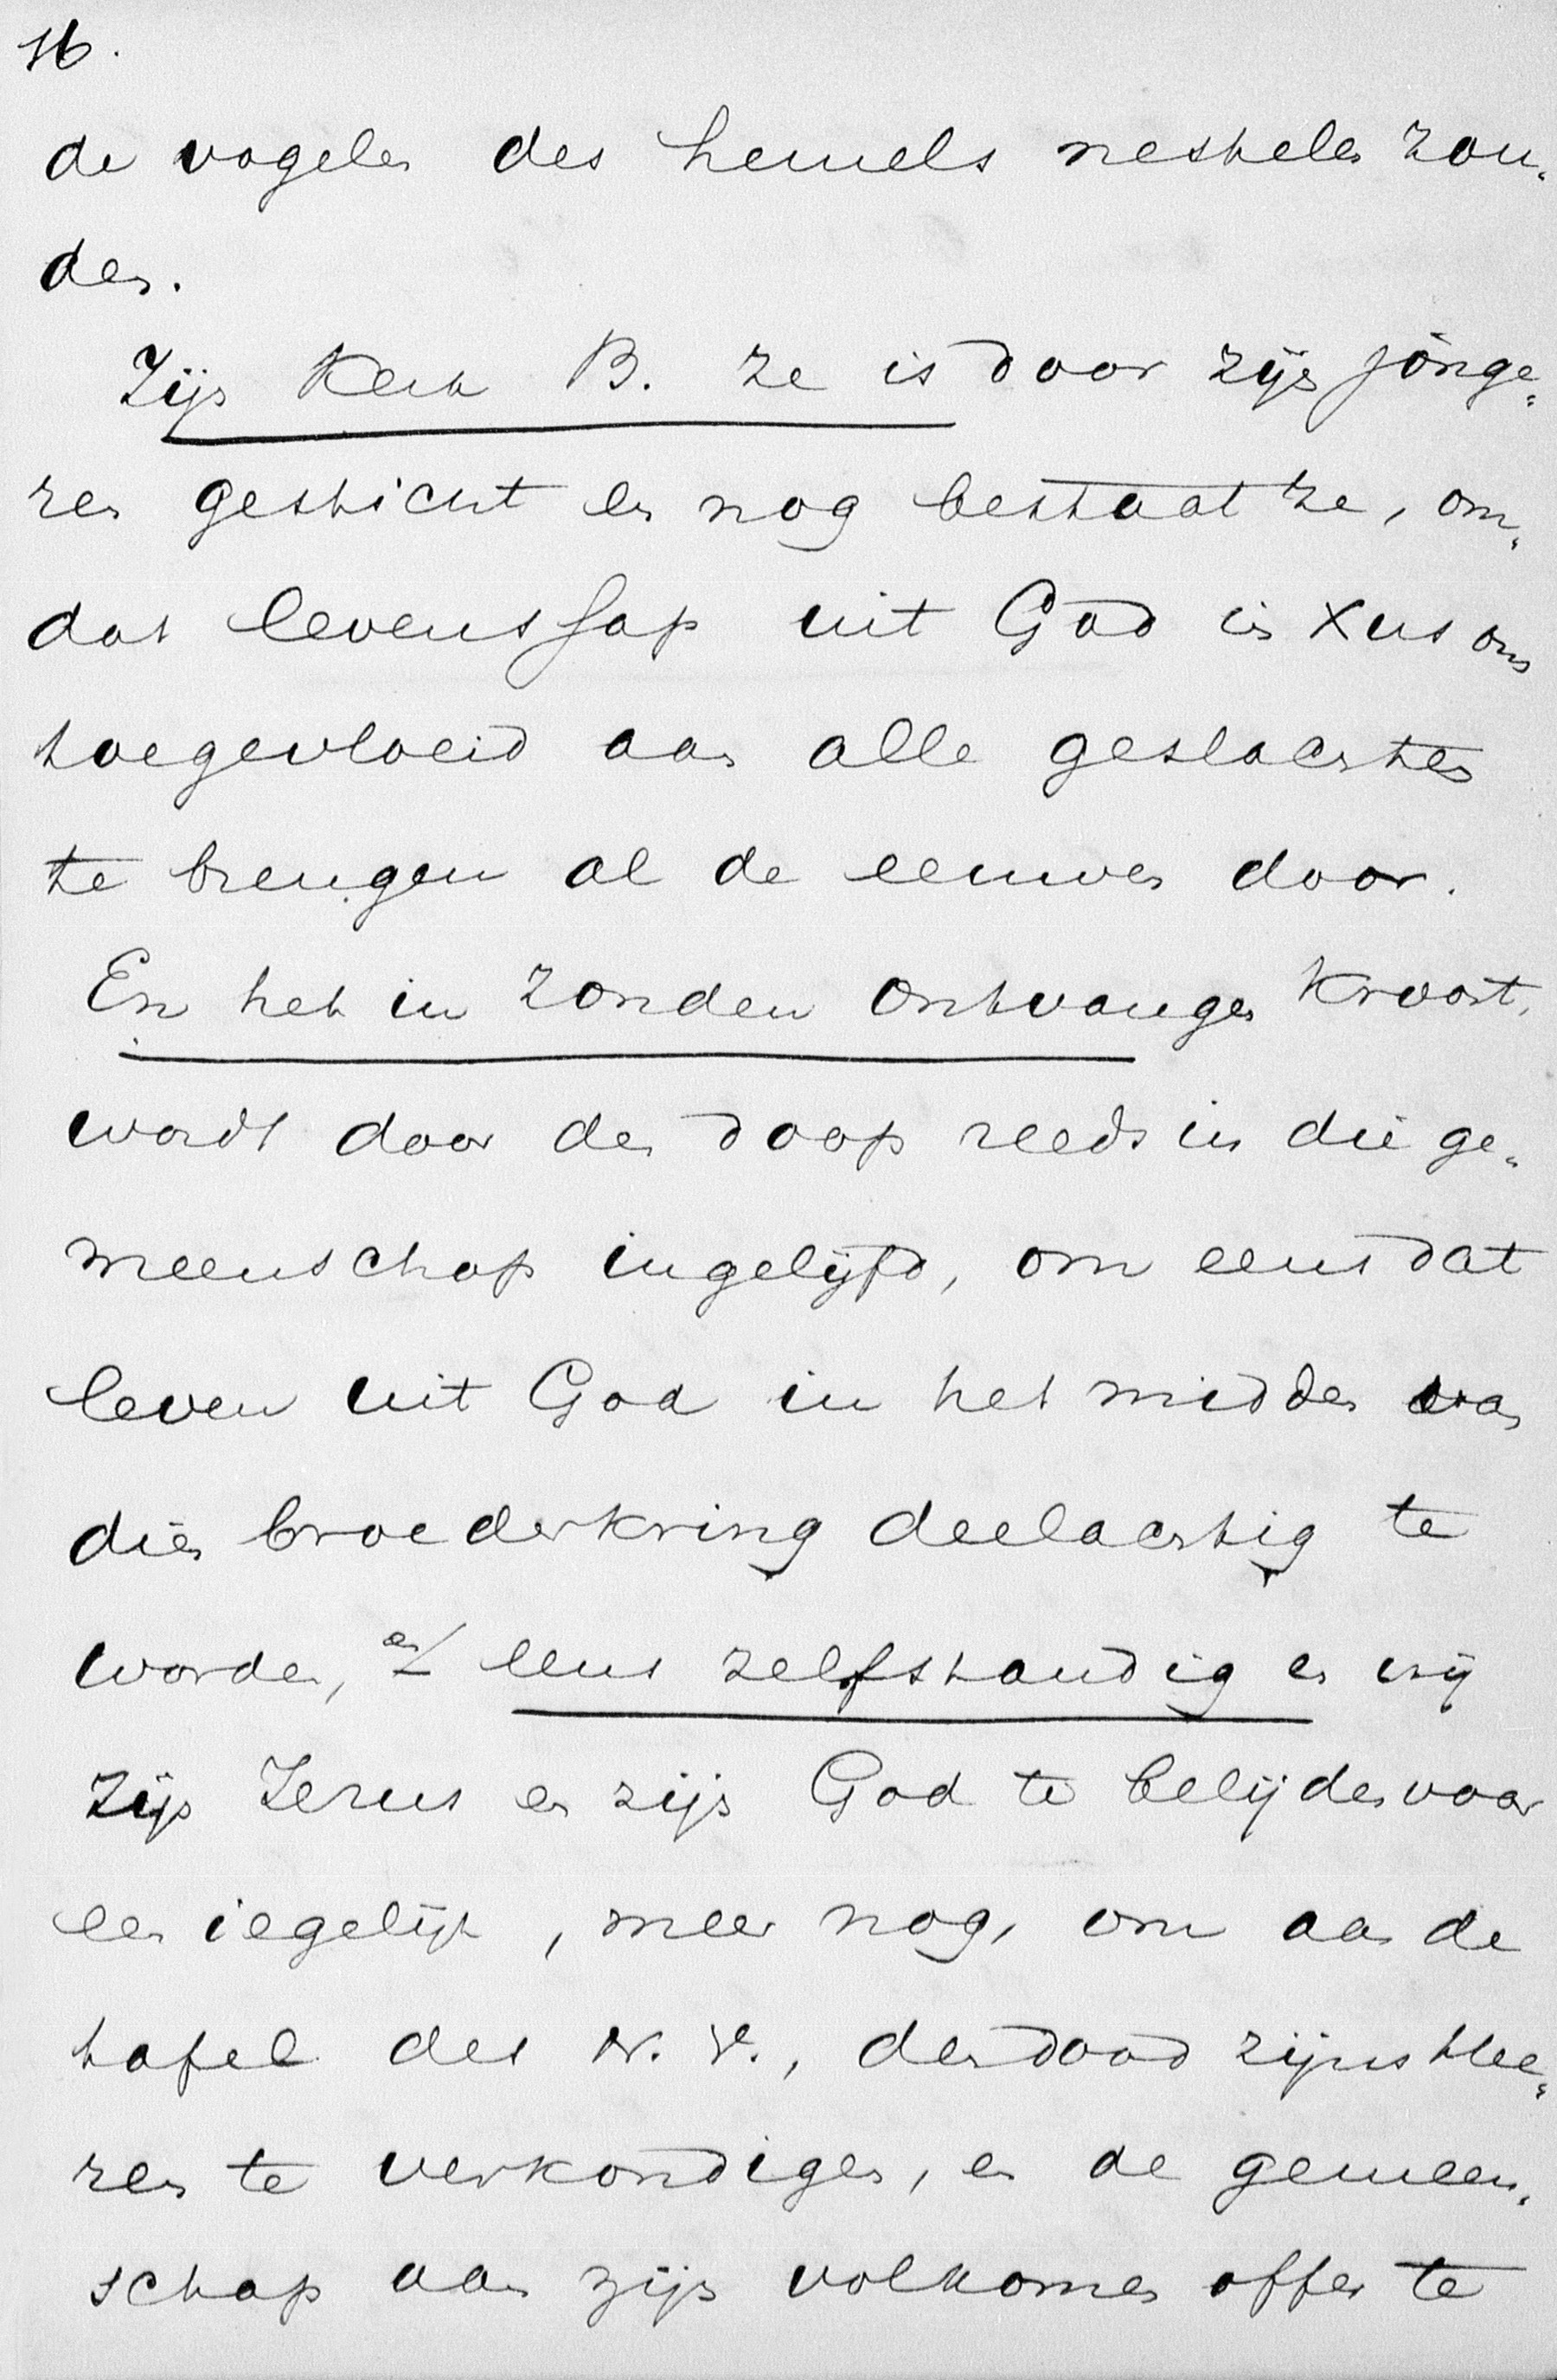 16.
de vogelen des hemels nestelen zou-
den.
Zijn Kerk B. ze is door zijn jonge-
ren gesticht en nog bestaat ze, om
dat levenssap uit God in Xus ons
toegevloeid aan alle geslachten
te brengen al de eeuwen door.
En het in zonden ontvangen kroost,
wordt door den doop reeds in die ge-
meenschap ingelijfd, om eens dat
leven uit God in het midden van
dien broederkring deelachtig te
worden, en eens zelfstandig en vrij
zijn Jezus en zijn God te belijden voor
een iegelijk, meer nog, om aan de
tafel des N. V., den dood zijns Hee-
ren te verkondigen, en de gemeen-
schap aan zijn volkomen offer te